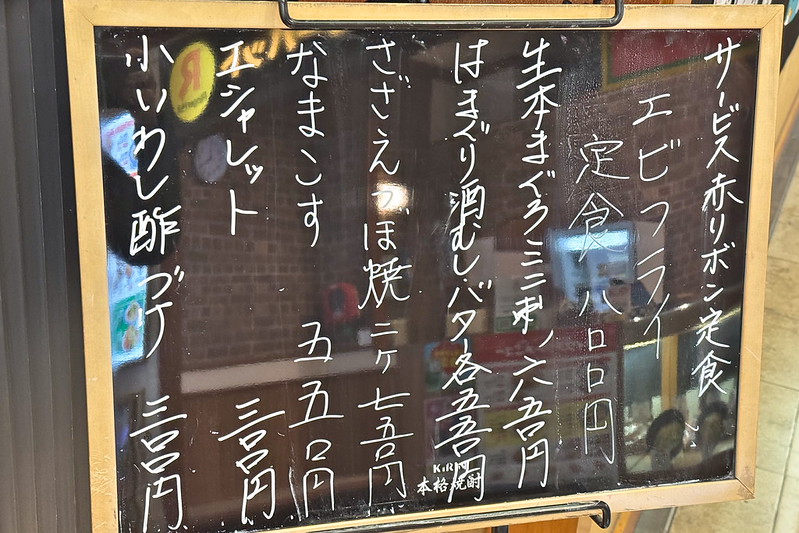 サービス赤リボン定食
エビフライ
定食 八〇〇円
生本まぐろミニ刺 六五〇円
はまぐり酒むしバター各五五〇円
さざえつぼ焼 二ケ 七五〇円
なまこす 五五〇円
エシャレット 三〇〇円
小いわし酢ヅケ 三〇〇円
KIRIN
本格焼酎